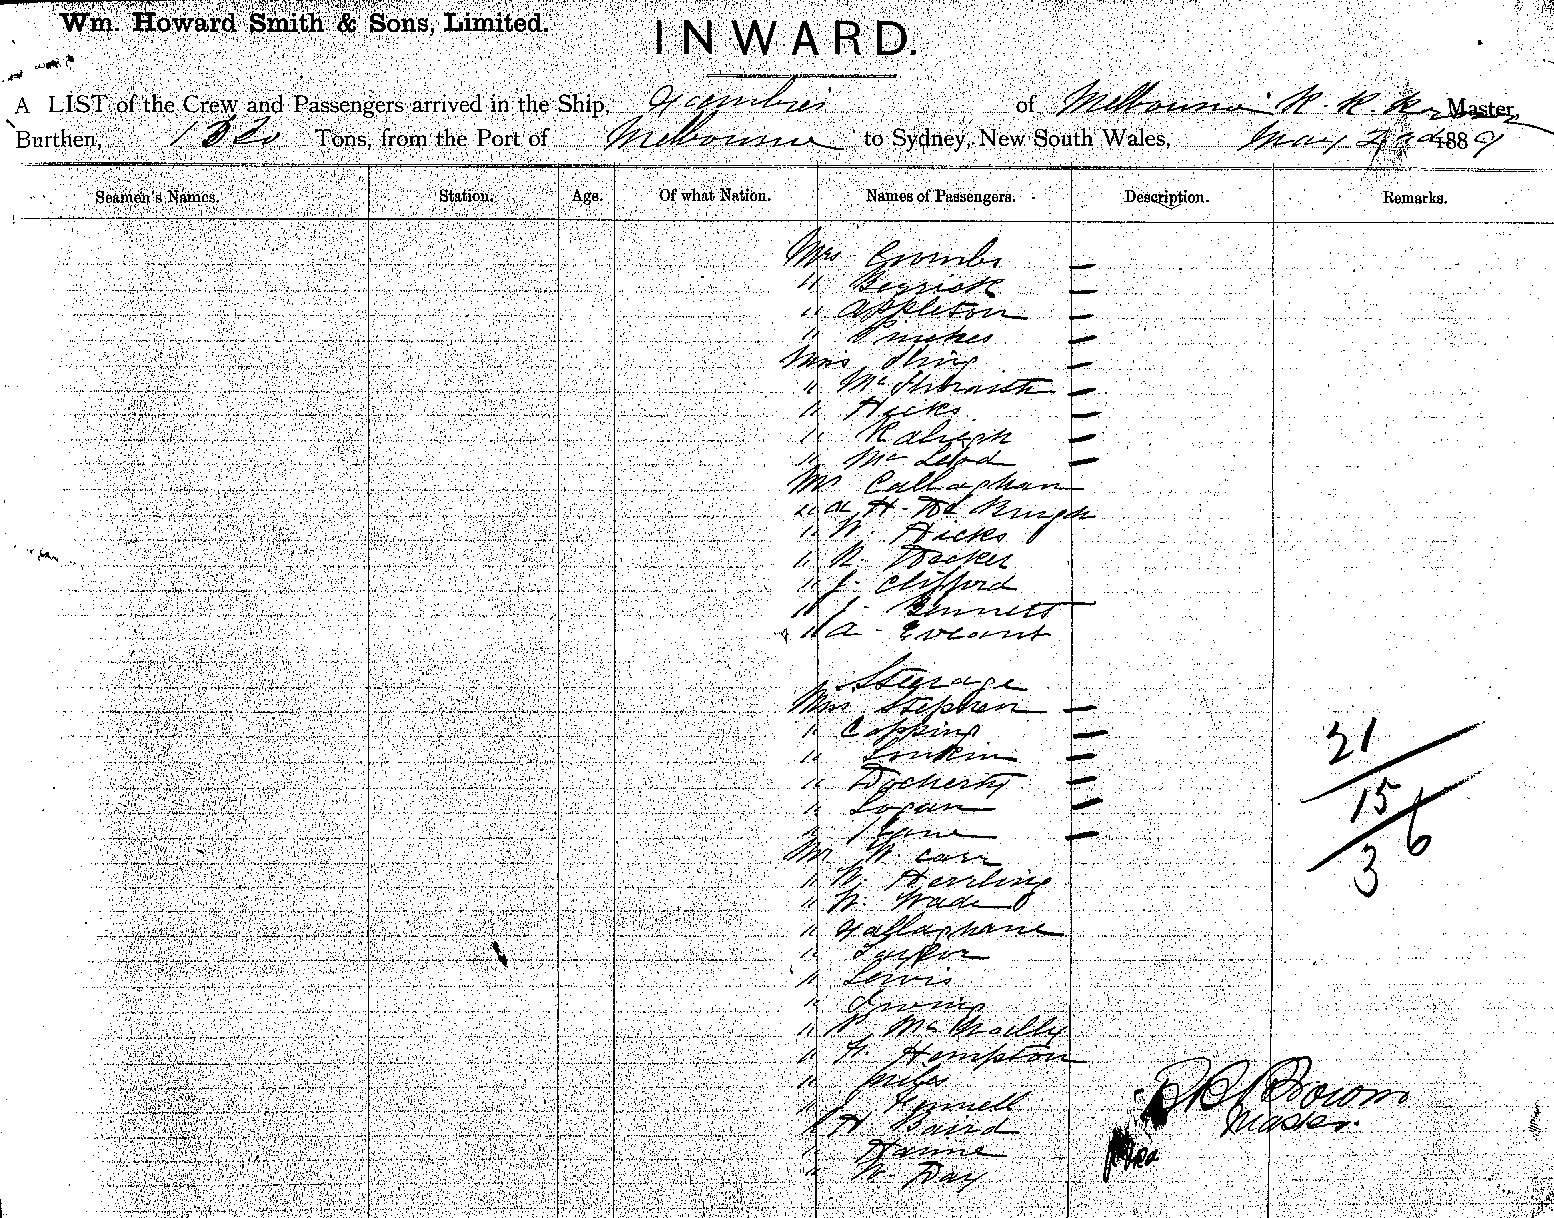 Wm. Howard Smith & Sons, Limited.
INWARD.
A LIST of the Crew and Passengers arrived in the Ship, Gambier of Melbourne Master,
Burthen, Tons, from the Port of Melbourne to Sydney, New South Wales, May 1889
Seamen's Names. Station. Age. Of what Nation. Names of Passengers. Description. Remarks.
Mrs Crombs
" Berrick
" Appleton
"
Miss King
" Mc
" Hicks
" Raleigh
" McLeod
Mr Callaghan
" A H. De Burgh
" W. Hicks
" R. Docker
" J. Clifford
" J. Bennett
" A.
Steerage
Mrs Stephen —
" Copping —
" —
" Docherty —
" Logan —
" —
Mr W. Carr
" W. Harling
" W. Wade
" Gallaghane
" Taylor
" Lewis
" Irving
" P. McNally
" W. Hempton
" Miles
" J. Fennell
" H Baird
" Hanne
" W. Day
21
15
36
Brown
Master.